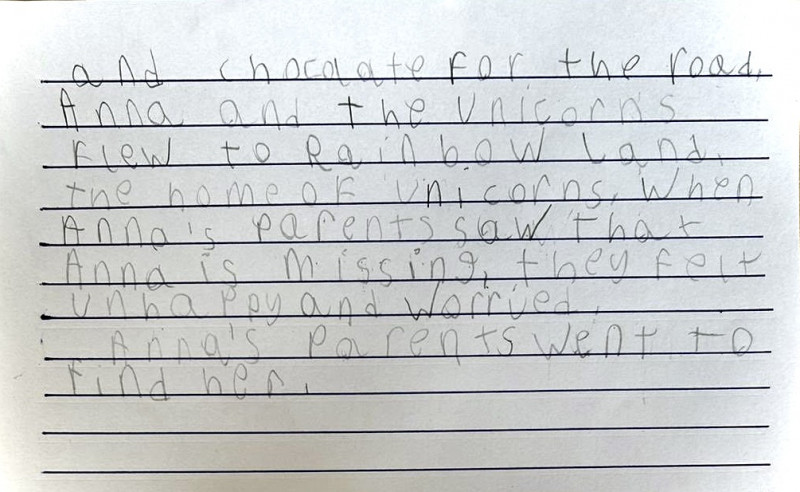 and chocolate for the road.
Anna and the Unicorns
flew to Rainbow Land,
the home of Unicorns. When
Anna's parents saw that
Anna is missing, they felt
unhappy and worried.
Anna's parents went to
find her.